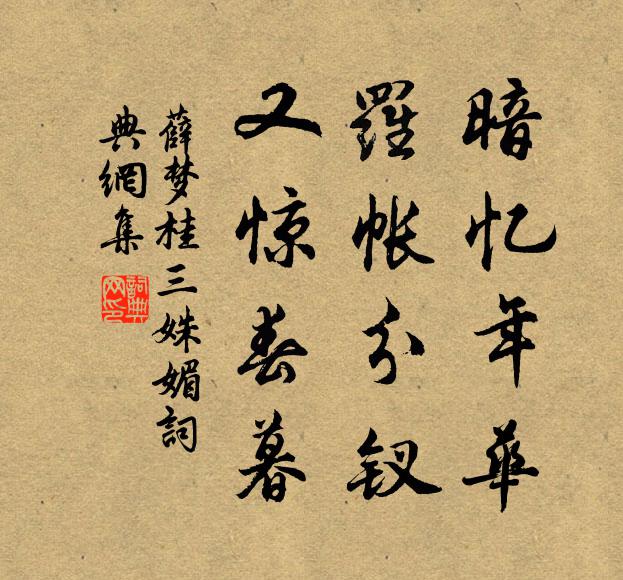 暗忆年華
羅帐分钗
又惊春暮
薛梦桂三姝媚詞
典網集
詞典网印